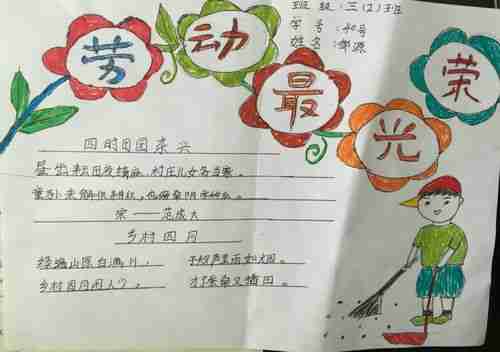 班级:三(2)班
学号:40号
姓名:郭源
劳动最光荣
四时田园杂兴
昼出耘田夜绩麻,村庄儿女各当家。
童孙未解供耕织,也傍桑阴学种瓜。
宋——范成大
乡村四月
绿遍山原白满川, 子规声里雨如烟。
乡村四月闲人少, 才了蚕桑又插田。